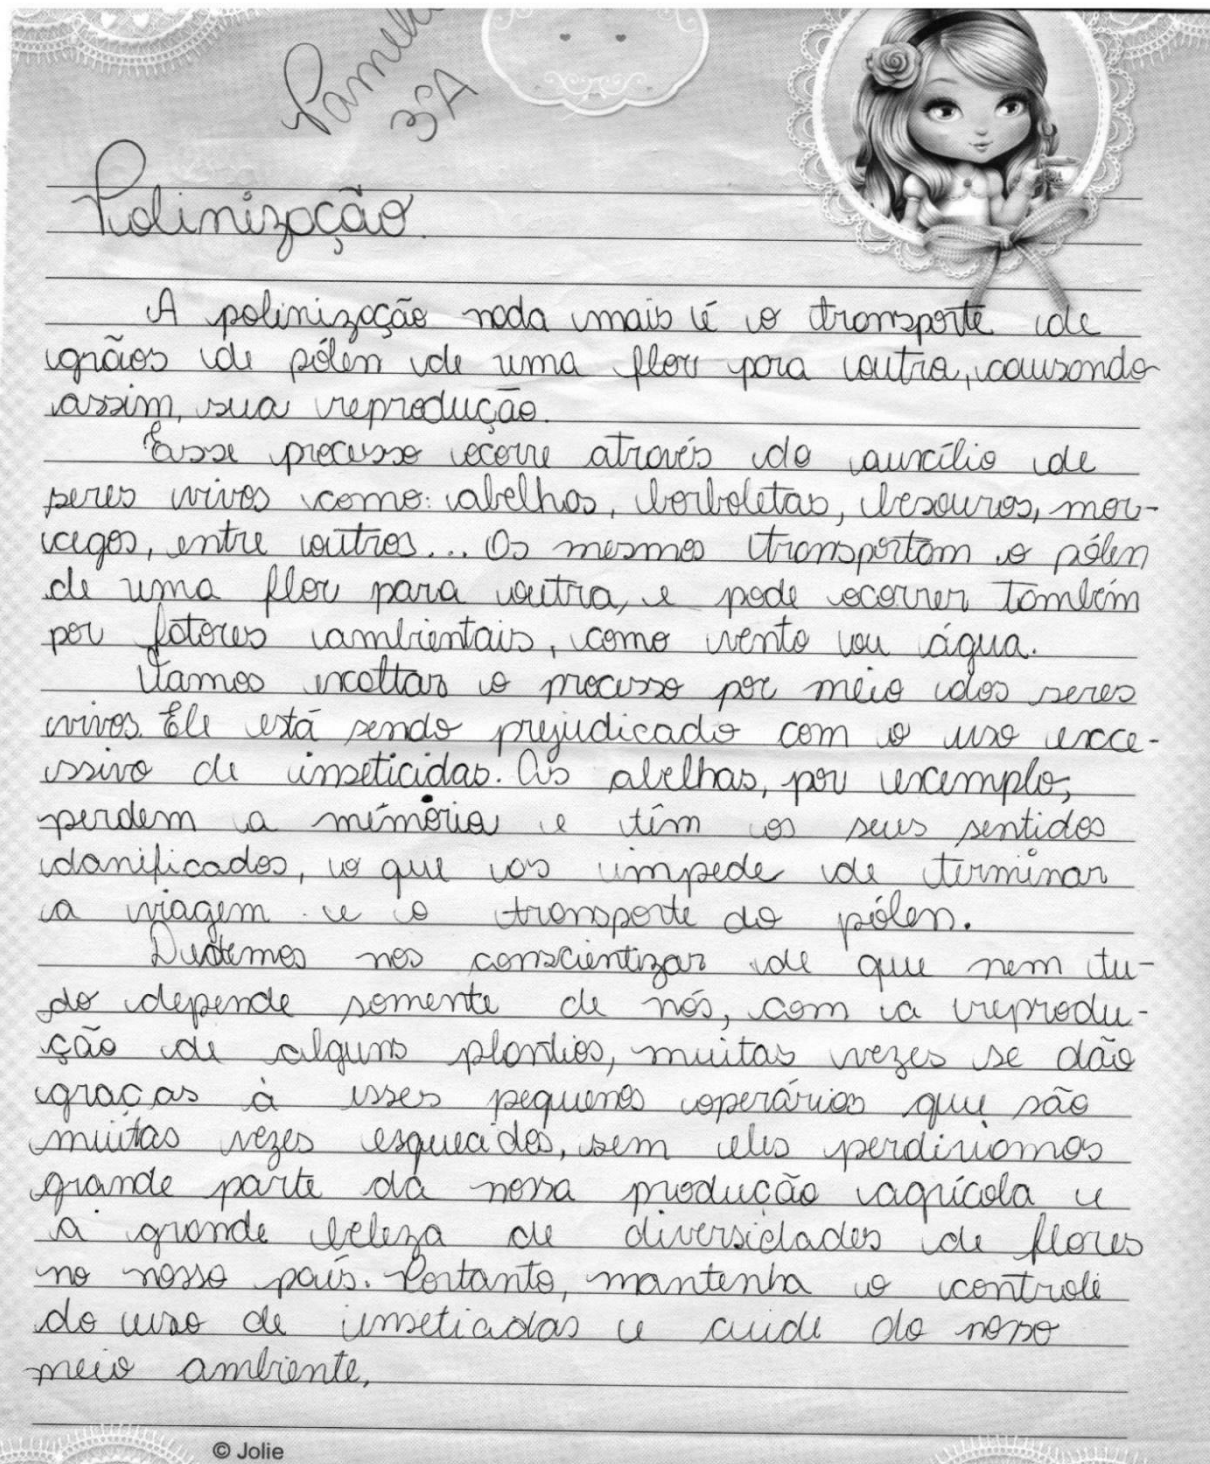 Pamela
3ºA
Polinização.
A polinização nada mais é o transporte de
grãos de pólen de uma flor para outra, causando
assim, sua reprodução.
Esse processo ocorre através do auxílio de
seres vivos como: abelhas, borboletas, besouros, mor-
cegos, entre outros... Os mesmos transportam o pólen
de uma flor para outra, e pode ocorrer também
por fatores ambientais, como vento ou água.
Vamos exaltar o processo por meio dos seres
vivos. Ele está sendo prejudicado com o uso exce-
ssivo de inseticidas. As abelhas, por exemplo,
perdem a mémória e têm os seus sentidos
danificados, o que os impede de terminar
a viagem e o transporte do pólen.
Devemos nos conscientizar de que nem tu-
do depende somente de nós, com a reprodu-
ção de alguns plantios, muitas vezes se dão
graças à esses pequenos operários que são
muitas vezes esquecidos, sem eles perderiamos
grande parte da nossa produção agrícola e
a grande beleza de diversidades de flores
no nosso país. Portanto, mantenha o controle
do uso de insetiadas e cuide do nosso
meio ambiente.
© Jolie